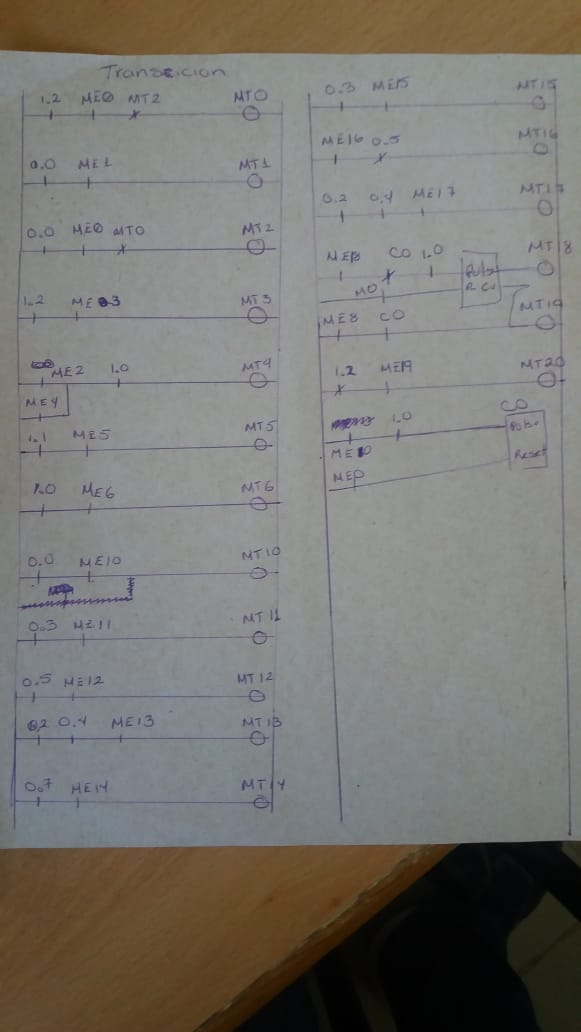 Transcicion
1.2 ME0 MT2 MT0
0.0 ME1 MT1
0.0 ME0 MT0 MT2
1.2 ME3 MT3
ME2 1.0 MT4
ME4
1.1 ME5 MT5
1.0 ME6 MT6
0.0 ME10 MT10
0.3 ME11 MT11
0.5 ME12 MT12
0.2 0.4 ME13 MT13
0.7 ME14 MT14
0.3 ME15 MT15
ME16 0.5 MT16
0.2 0.4 ME17 MT17
ME8 C0 1.0 MT18
M0 R Cu
ME8 C0 MT19
1.2 ME19 MT20
1.0 C0
Pulso
ME10 Reset
ME0